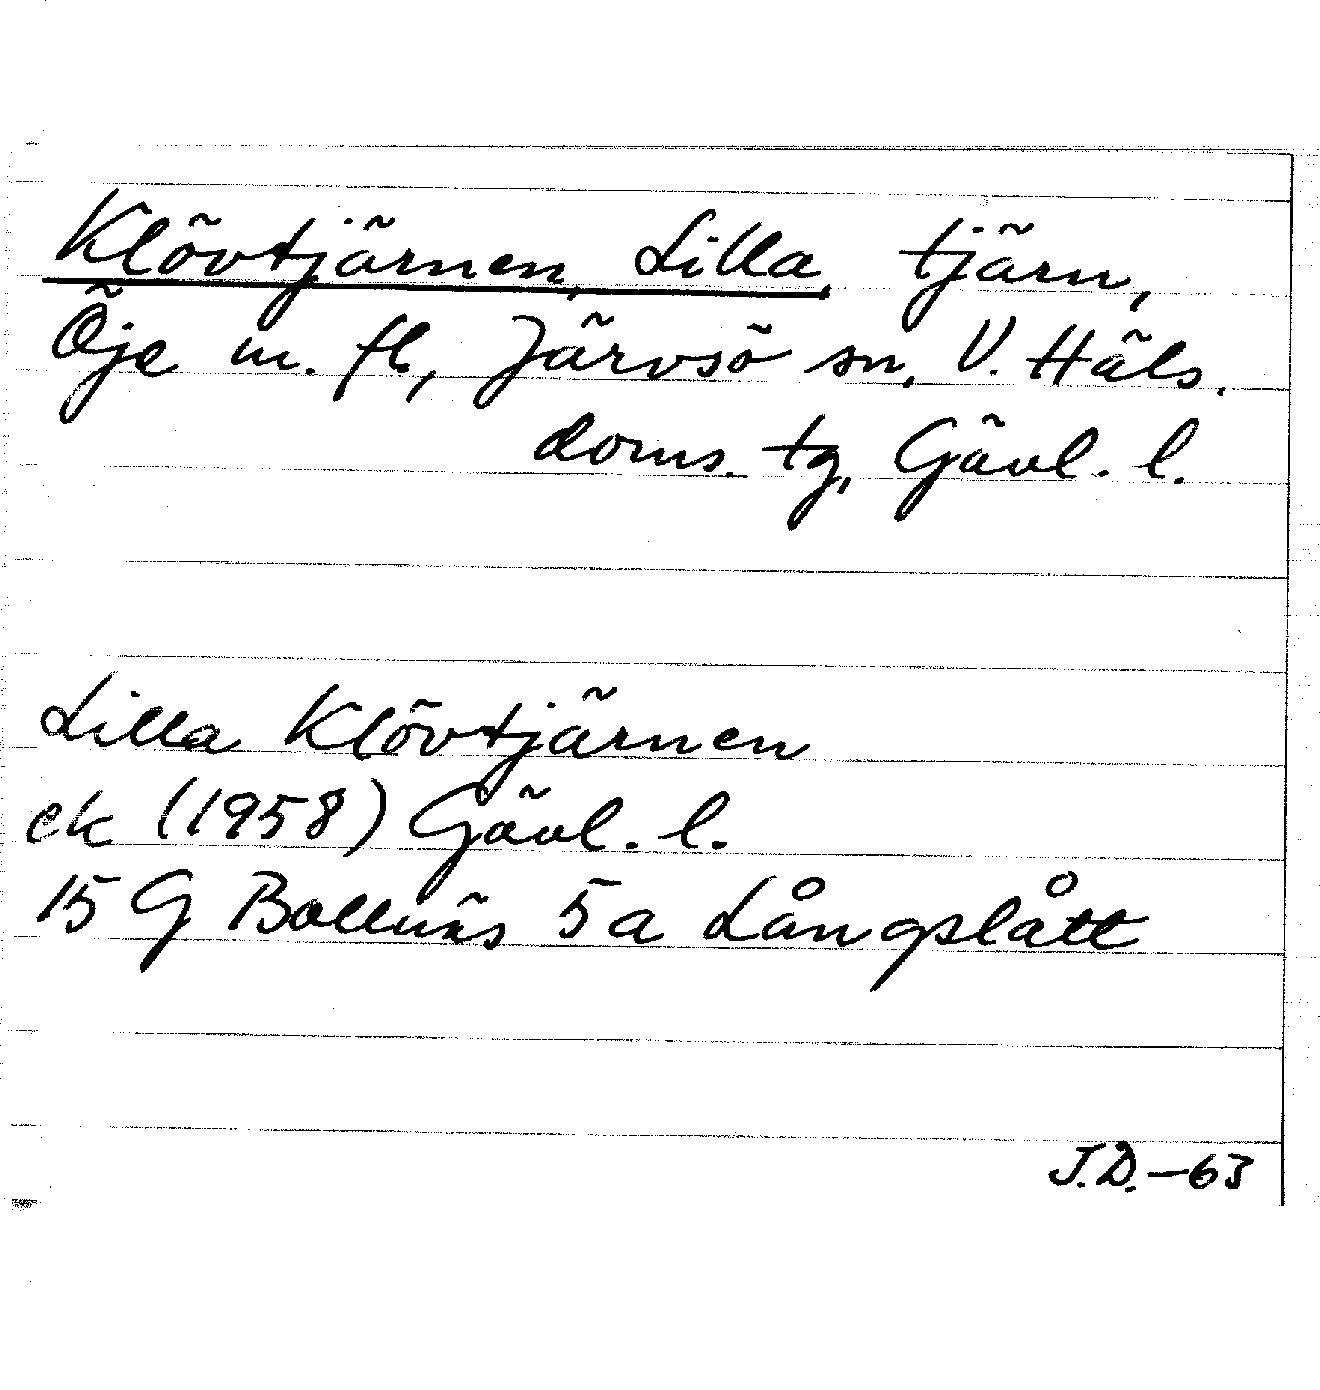 Klövtjärnen, Lilla, tjärn,
Öje m. fl., Järvsö sn, V. Häls.
doms. tg, Gävl. l.
Lilla Klövtjärnen
ek (1958) Gävl. l.
15 G Bollnäs 5a Långslått
J.D.-63